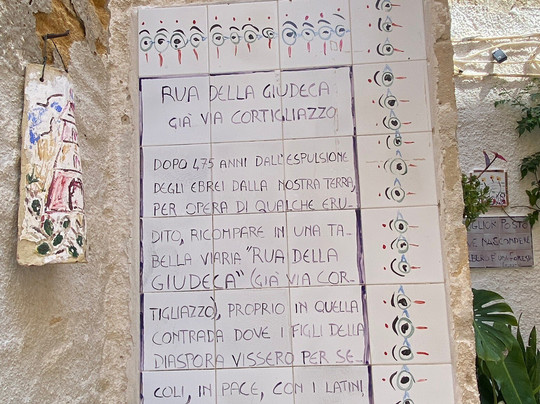 RUA DELLA GIUDECA
GIÀ VIA CORTIGLIAZZO
DOPO 475 ANNI DALL'ESPULSIONE
DEGLI EBREI DALLA NOSTRA TERRA,
PER OPERA DI QUALCHE ERU-
DITO, RICOMPARE IN UNA TA-
BELLA VIARIA "RUA DELLA
GIUDECA" (GIÀ VIA COR-
TIGLIAZZO), PROPRIO IN QUELLA
CONTRADA DOVE I FIGLI DELLA
DIASPORA VISSERO PER SE-
COLI, IN PACE, CON I LATINI
POSTO
NASCONDERE